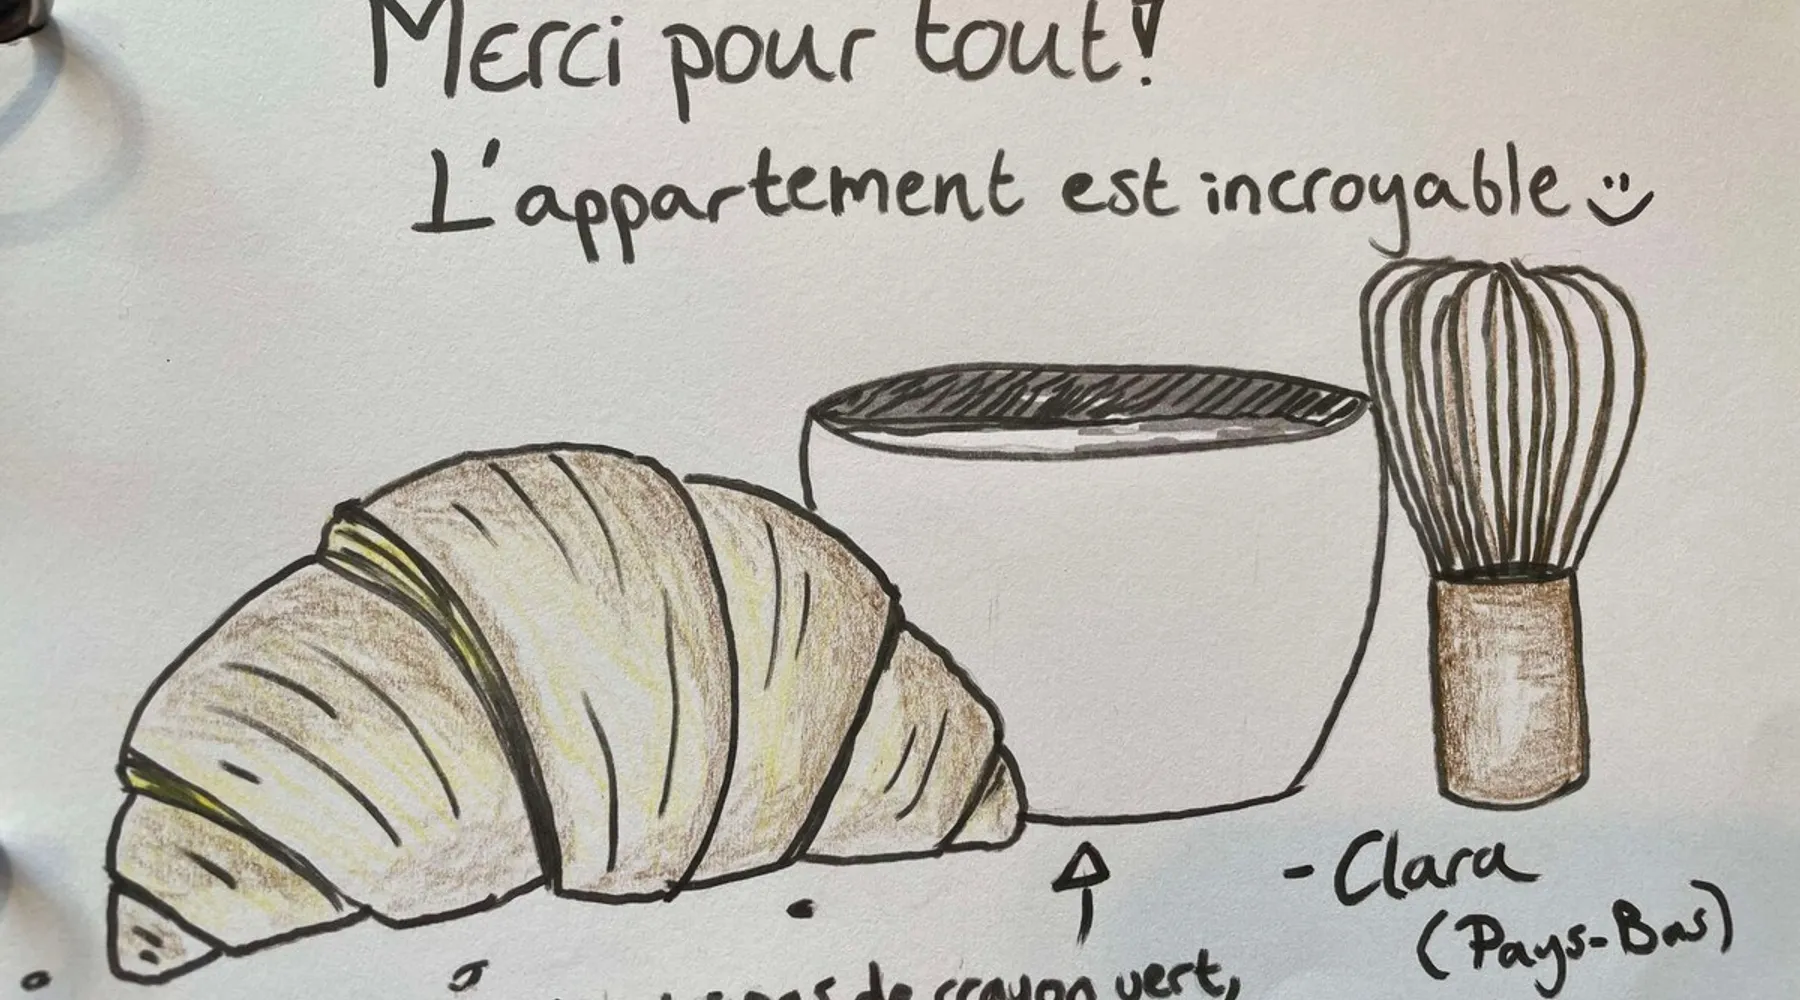 Merci pour tout!
L'appartement est incroyable :)
- Clara
(Pays-Bas)
pas de crayon vert,